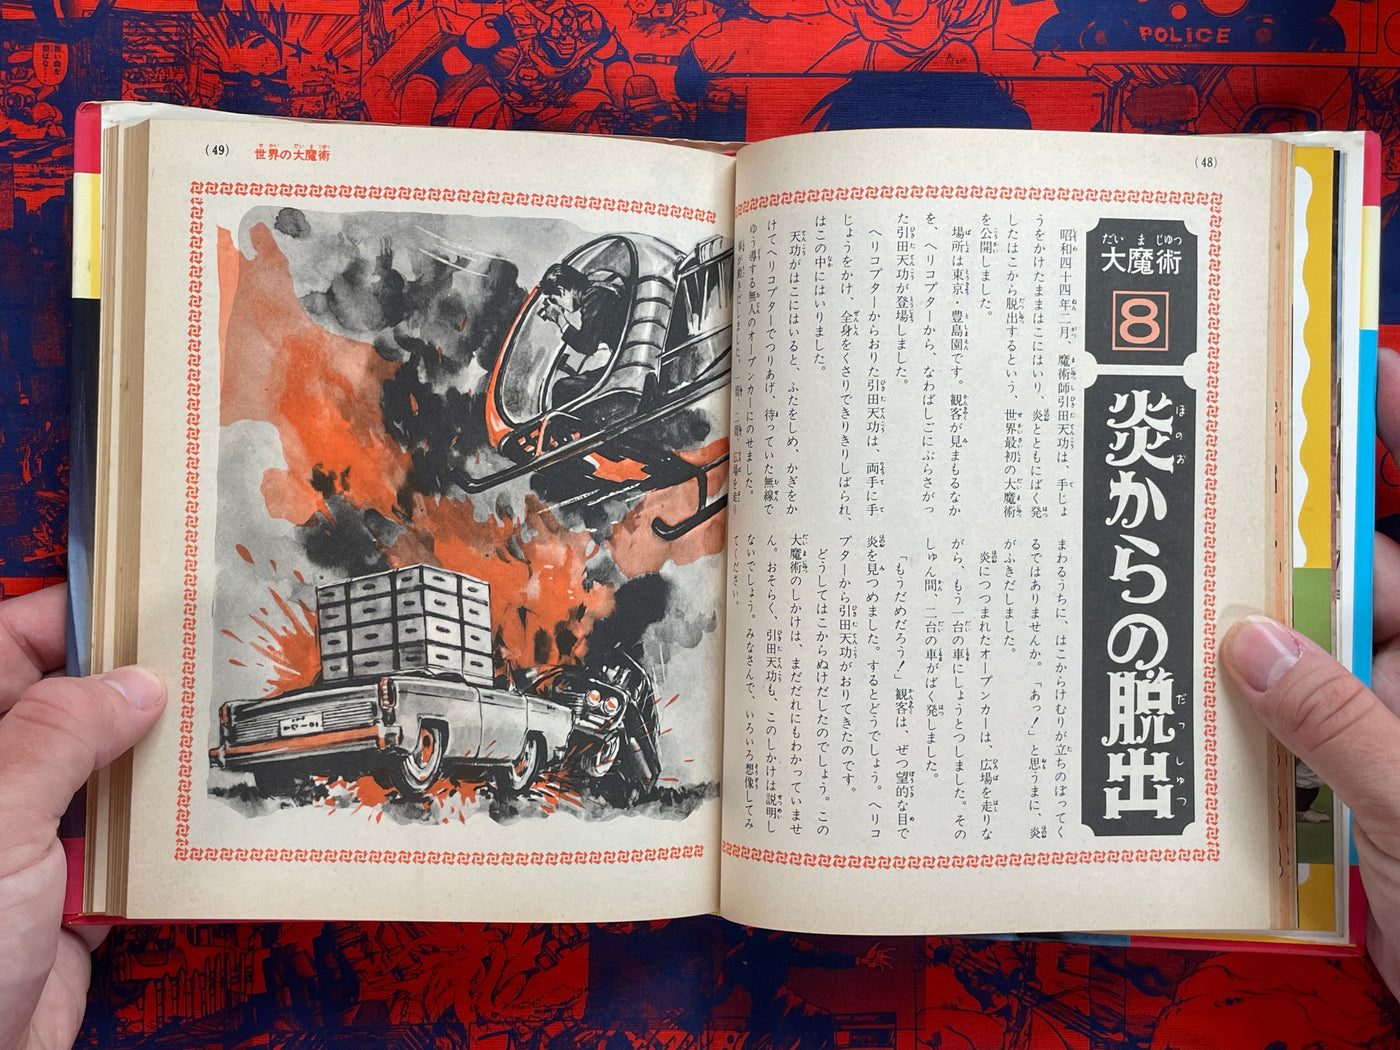 (48)
だいまじゅつ
大魔術
8
ほのおだっしゅつ
炎からの脱出
昭和四十四年二月、魔術師引田天功は、手じょ
うをかけたままはこにはいり、炎とともにばく発
したはこから脱出するという、世界最初の大魔術
を公開しました。
場所は東京・豊島園です。観客が見まもるなか
を、ヘリコプターから、なわばしごにぶらさがっ
た引田天功が登場しました。
ヘリコプターからおりた引田天功は、両手に手
じょうをかけ、全身をくさりできりきりしばられ、
はこの中にはいりました。
天功がはこにはいると、ふたをしめ、かぎをか
けてヘリコプターでつりあげ、待っていた無線で
ゆう導する無人のオープンカーにのせました。
車が動きだしました。一周、二周、広場を走り
まわるうちに、はこからけむりが立ちのぼってく
るではありませんか。「あっ！」と思うまに、炎
がふきだしました。
炎につつまれたオープンカーは、広場を走りな
がら、もう一台の車にしょうとつしました。その
しゅん間、二台の車がばく発しました。
「もうだめだろう！」観客は、ぜつ望的な目で
炎を見つめました。するとどうでしょう。ヘリコ
プターから引田天功がおりてきたのです。
どうしてはこからぬけだしたのでしょう。この
大魔術のしかけは、まだだれにもわかっていませ
ん。おそらく、引田天功も、このしかけは説明し
ないでしょう。みなさんで、いろいろ想像してみ
てください。
(49)
せかいだいまじゅつ
世界の大魔術
POLICE